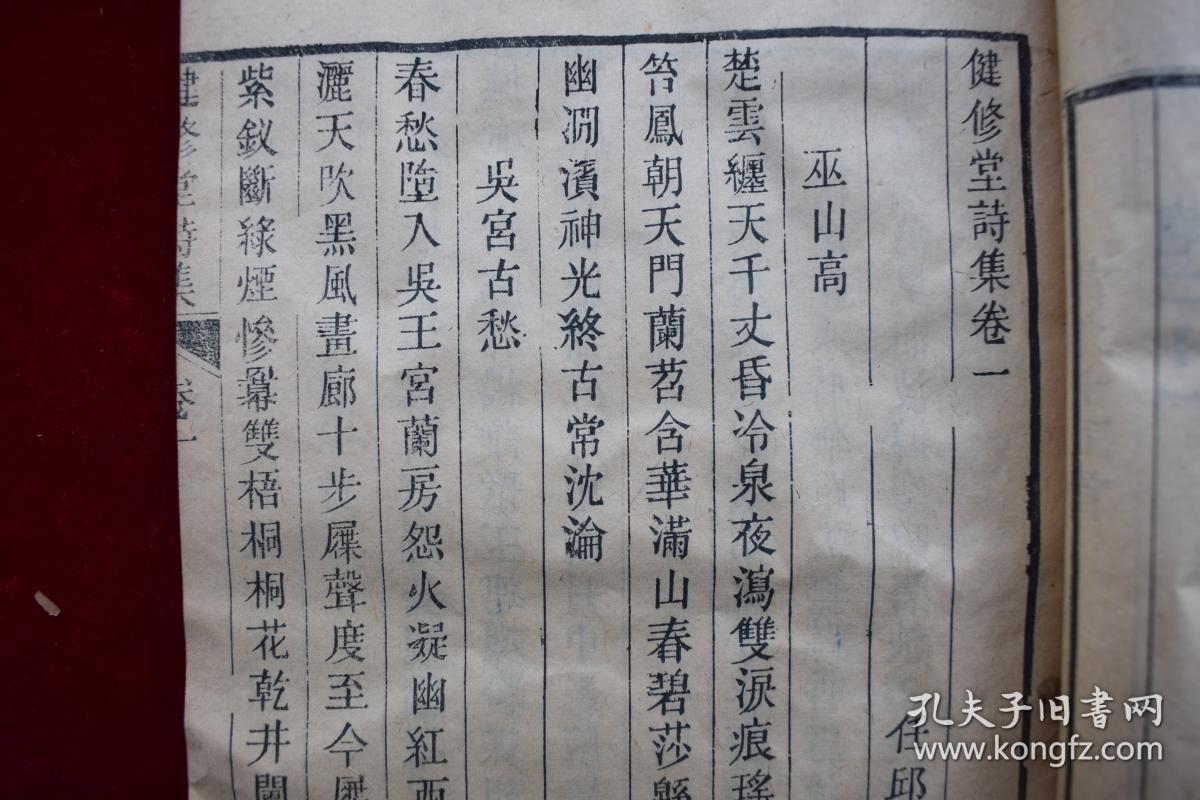 健修堂詩集卷一
任邱
巫山高
楚雲纏天千丈昏冷泉夜瀉雙淚痕瑤
笞鳳朝天門蘭苕含華滿山春碧莎緜
幽澗濱神光終古常沈淪
吳宮古愁
春愁墮入吳王宮蘭房怨火凝幽紅西
灑天吹黑風畫廊十步屧聲度至今屧
紫釵斷綠煙慘冪雙梧桐桐花乾井闌
健修堂詩集 卷一
孔夫子旧书网
www.kongfz.com